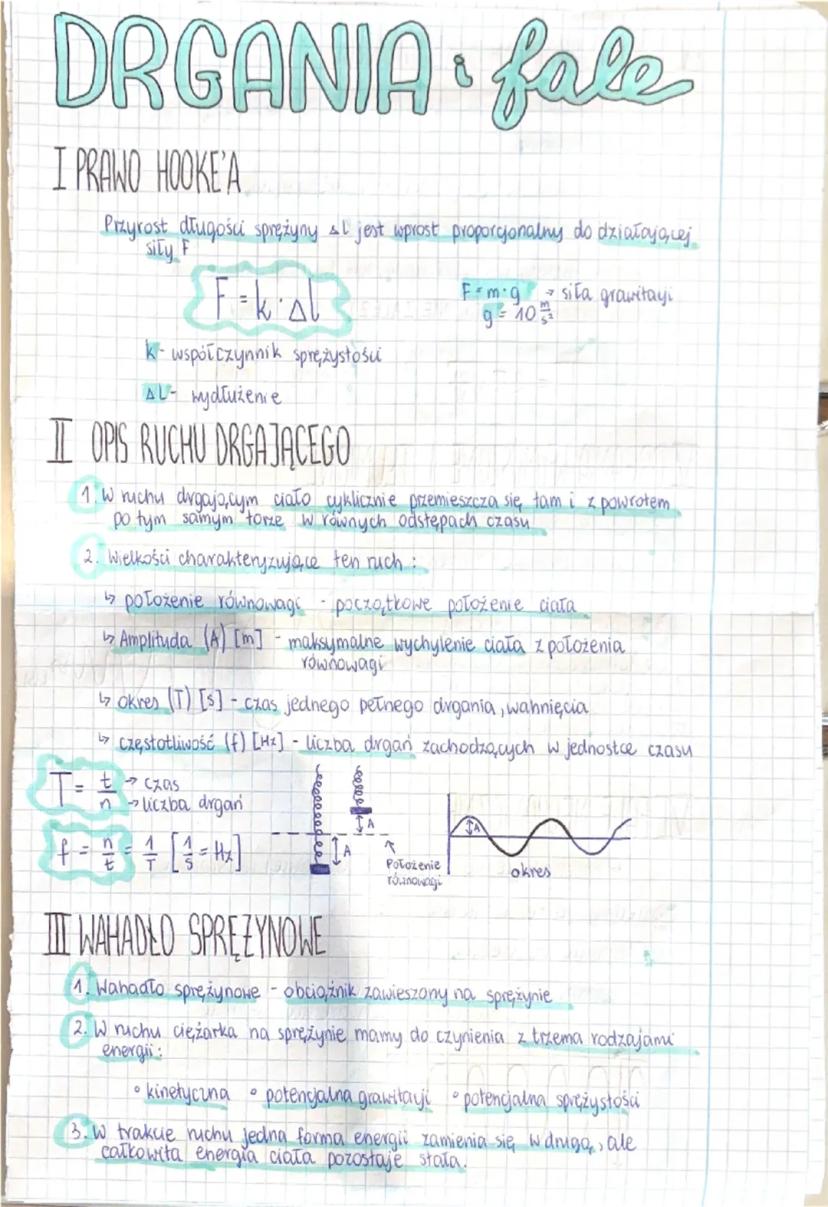 DRGANIA i fale
I PRAWO HOOKE'A
Przyrost długości sprężyny Δl jest wprost proporcjonalny do działającej
siły F
F = k · Δl
F = m · g → siła grawitacji
g = 10 m/s²
k - współczynnik sprężystości
ΔL - wydłużenie
II OPIS RUCHU DRGAJĄCEGO
1. W ruchu drgającym ciało cyklicznie przemieszcza się tam i z powrotem
po tym samym torze w równych odstępach czasu
2. Wielkości charakteryzujące ten ruch :
↳ położenie równowagi - początkowe położenie ciała
↳ Amplituda (A) [m] - maksymalne wychylenie ciała z położenia
równowagi
↳ okres (T) [s] - czas jednego pełnego drgania, wahnięcia
↳ częstotliwość (f) [Hz] - liczba drgań zachodzących w jednostce czasu
T = t/n → czas
→ liczba drgań
f = n/t = 1/T [1/s = Hz]
A
A
Położenie
równowagi
A
okres
III WAHADŁO SPRĘŻYNOWE
1. Wahadło sprężynowe - obciążnik zawieszony na sprężynie
2. W ruchu ciężarka na sprężynie mamy do czynienia z trzema rodzajami
energii:
• kinetyczna • potencjalna grawitacji • potencjalna sprężystości
3. W trakcie ruchu jedna forma energii zamienia się w drugą, ale
całkowita energia ciała pozostaje stała.